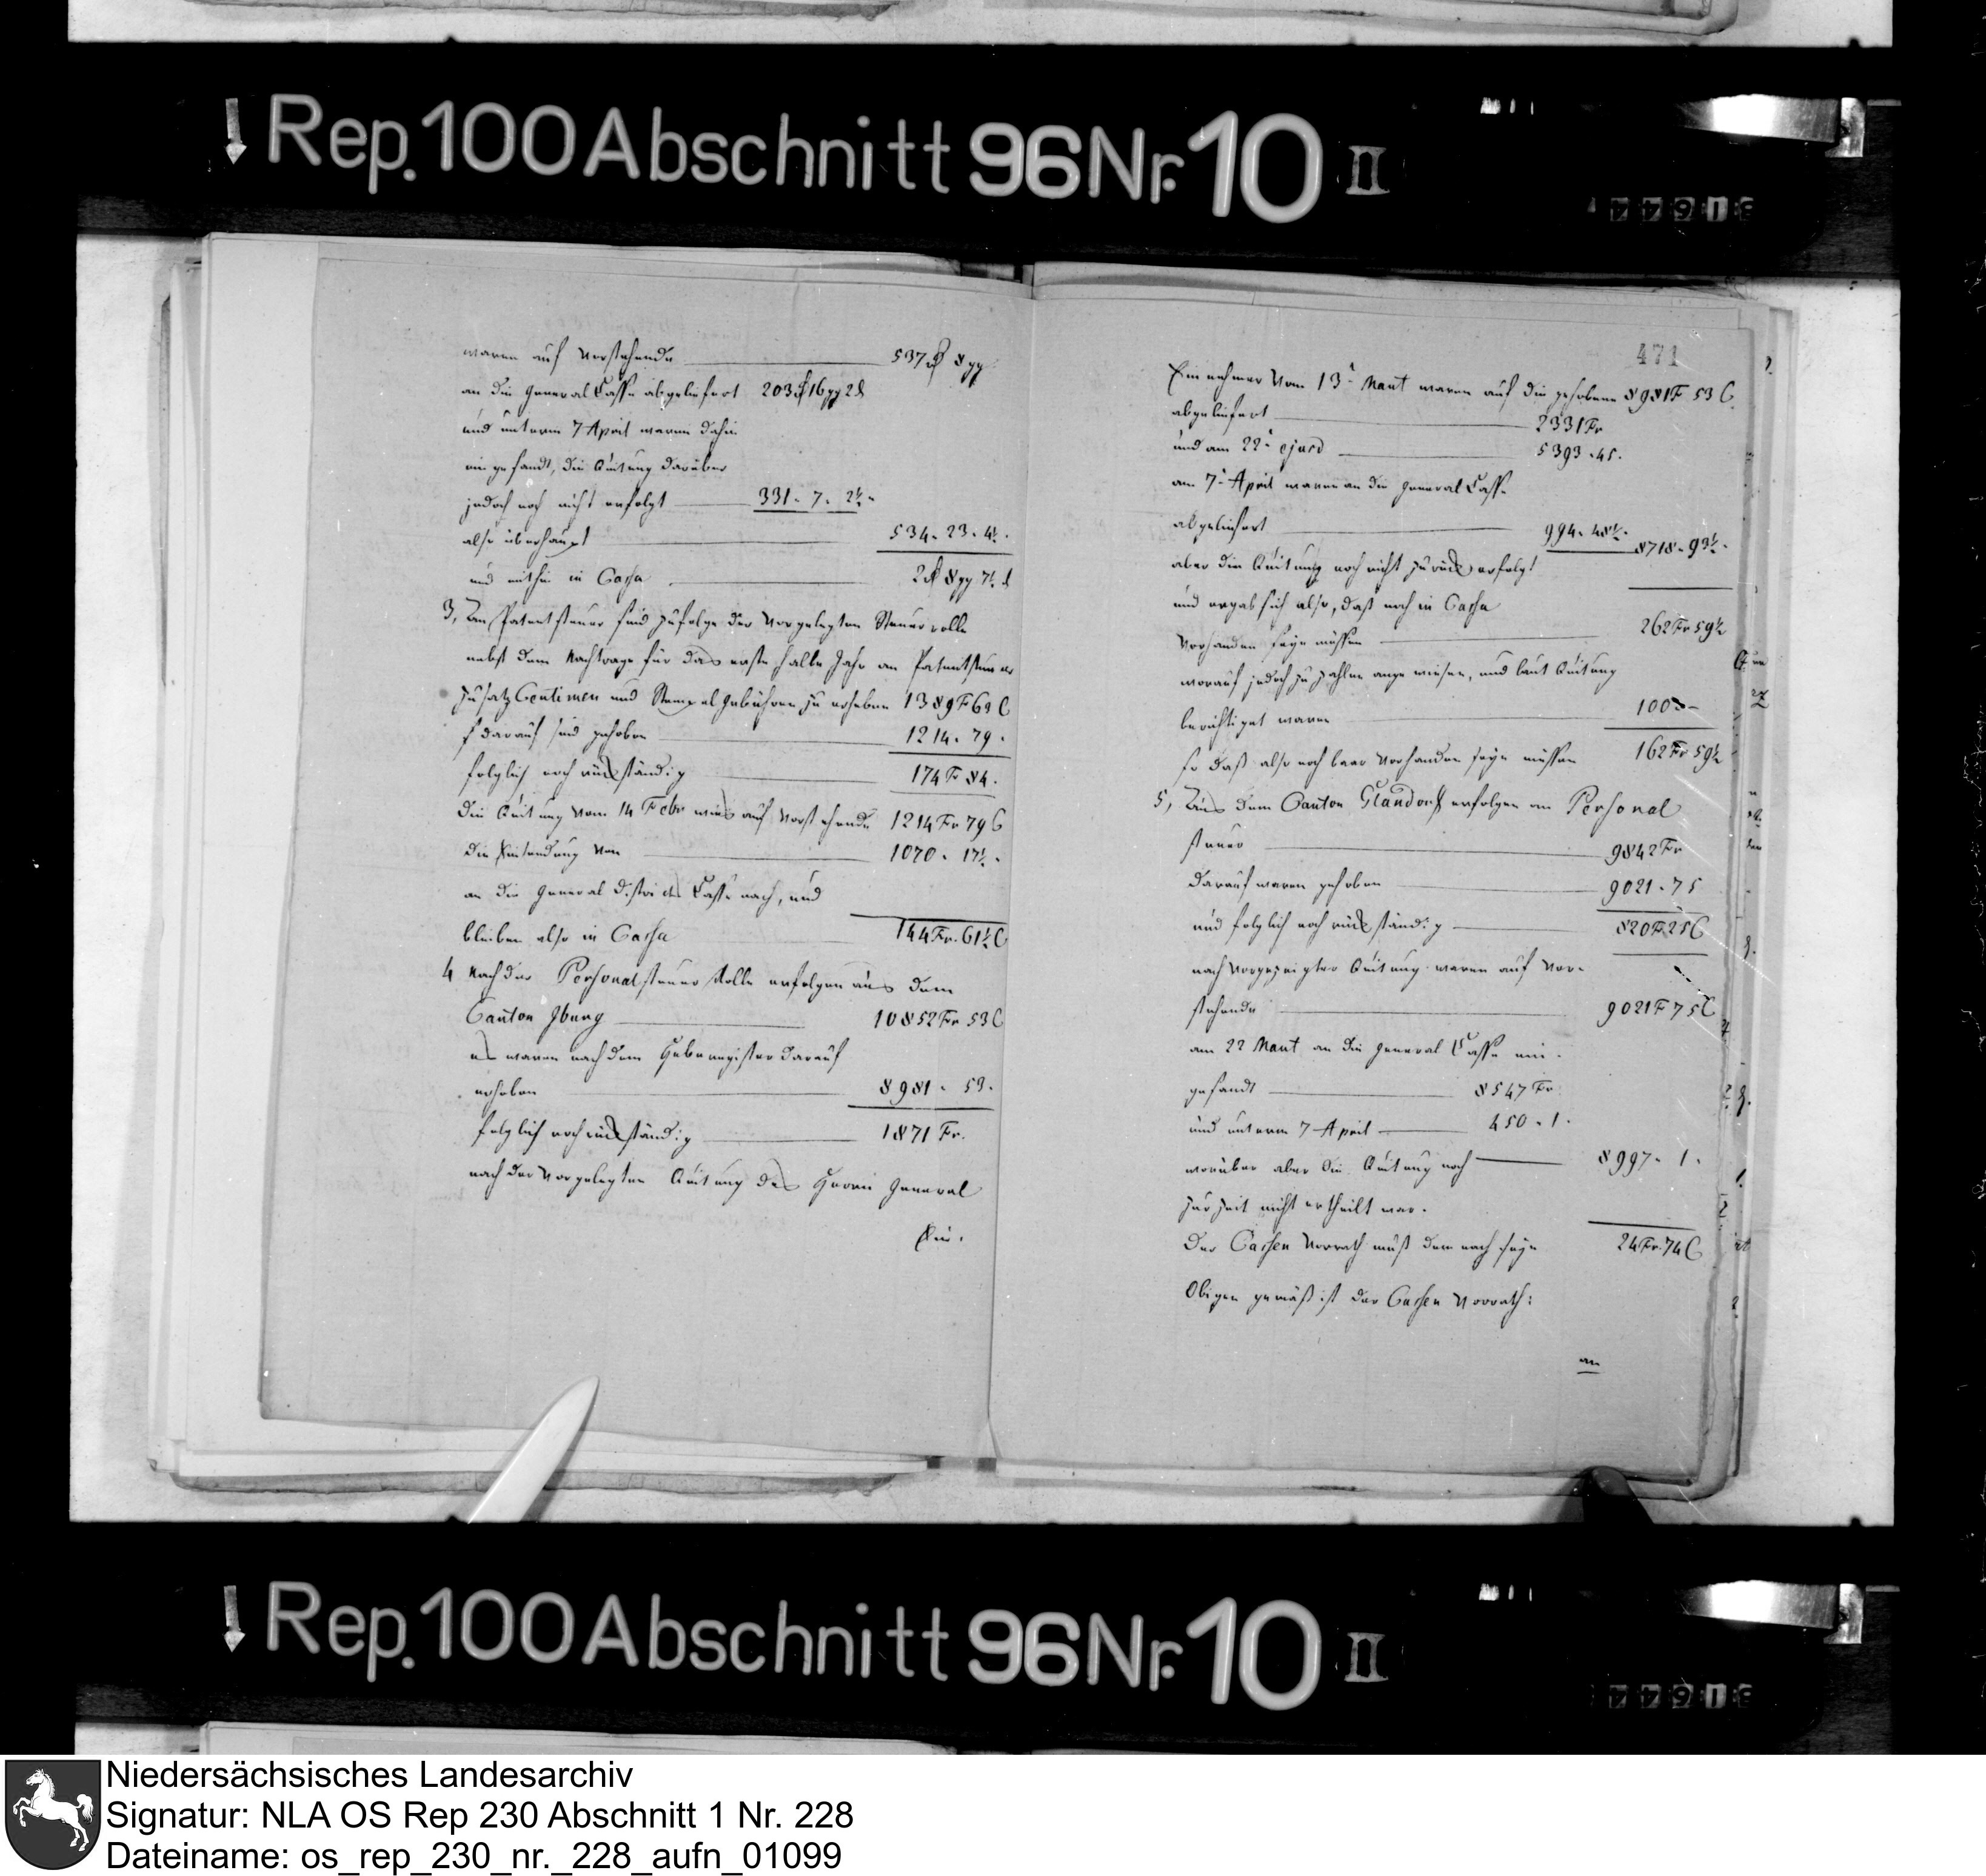 Rep. 100 Abschnitt 96 Nr. 10 II
waren auf Vorstehende 537 rt 8 gg
an die General Casse abgeliefert 203 rt 16 gg 2 d
und unterm 7 April waren dahin
eingesandt, die Quitung darüber
jedoch noch nicht erfolgt 331 - 7 - 2½ -
also überhaupt 534 - 23 - 4½ -
und mithin in Cassa 2 rt 8 gg 7½ d
3, An Patentsteuer sind zufolge der Vorgelegten Steuerrolle
nebst dem Nachtrage für das erste halbe Jahr an Patentsteuer
zusatz Centimen und Stempelgebühren zu erheben 1389 F 63 C
darauf sind gehoben 1214 - 79 -
folglich noch rückständig 174 Fr 84 -
Die Quitung vom 14 Febr wies auf Vorstehende 1214 Fr 79 C
die Einsendung von 1070 - 17½ -
an die General Districts Casse nach, und
bleiben also in Cassa 144 Fr. 61½ C
4 Nach der Personalsteuer Rolle erfolgen aus dem
Canton Iburg 10852 Fr 53 C
es waren nach dem Heberegister darauf
erhoben 8981 - 53 -
folglich noch rückständig 1871 Fr.
nach der Vorgelegten Quitung des Herrn General
Ein-
471
Einnehmer Vom 13t Maert waren auf die gehobene 8981 F 53 C.
abgeliefert 2331 Fr
und am 22t ejusd 5393 - 45 -
am 7t April waren an die General Casse
abgeliefert 994 - 48½ - 8718 - 93½ -
aber die Quitung noch nicht zurück erfolgt
und ergab sich also, daß noch in Cassa
Vorhanden seyn müssen 262 Fr 59½
worauf jedoch zu zahlen angewiesen, und laut Quitung
berichtiget waren 100 -
so daß also noch baar Vorhanden seyn müssen 162 Fr 59½
5, Aus dem Canton Glandorff erfolgen an Personal
steuer 9842 Fr
darauf waren gehoben 9021 - 75
und folglich noch rückständig 820 F 25 C
nach Vorgezeigter Quitung waren auf Vor-
stehende 9021 F 75 C
am 22 Maert an die General Casse ein-
gesandt 8547 Fr
und unterm 7 April 450 - 1 -
worüber aber die Quitung noch 8997 - 1 -
zur Zeit nicht ertheilt war.
Der Cassen Vorrath muß demnach seyn 24 Fr. 74 C
Obigen gemäß ist der Cassen Vorrath:
an
Rep. 100 Abschnitt 96 Nr. 10 II
Niedersächsisches Landesarchiv
Signatur: NLA OS Rep 230 Abschnitt 1 Nr. 228
Dateiname: os_rep_230_nr._228_aufn_01099